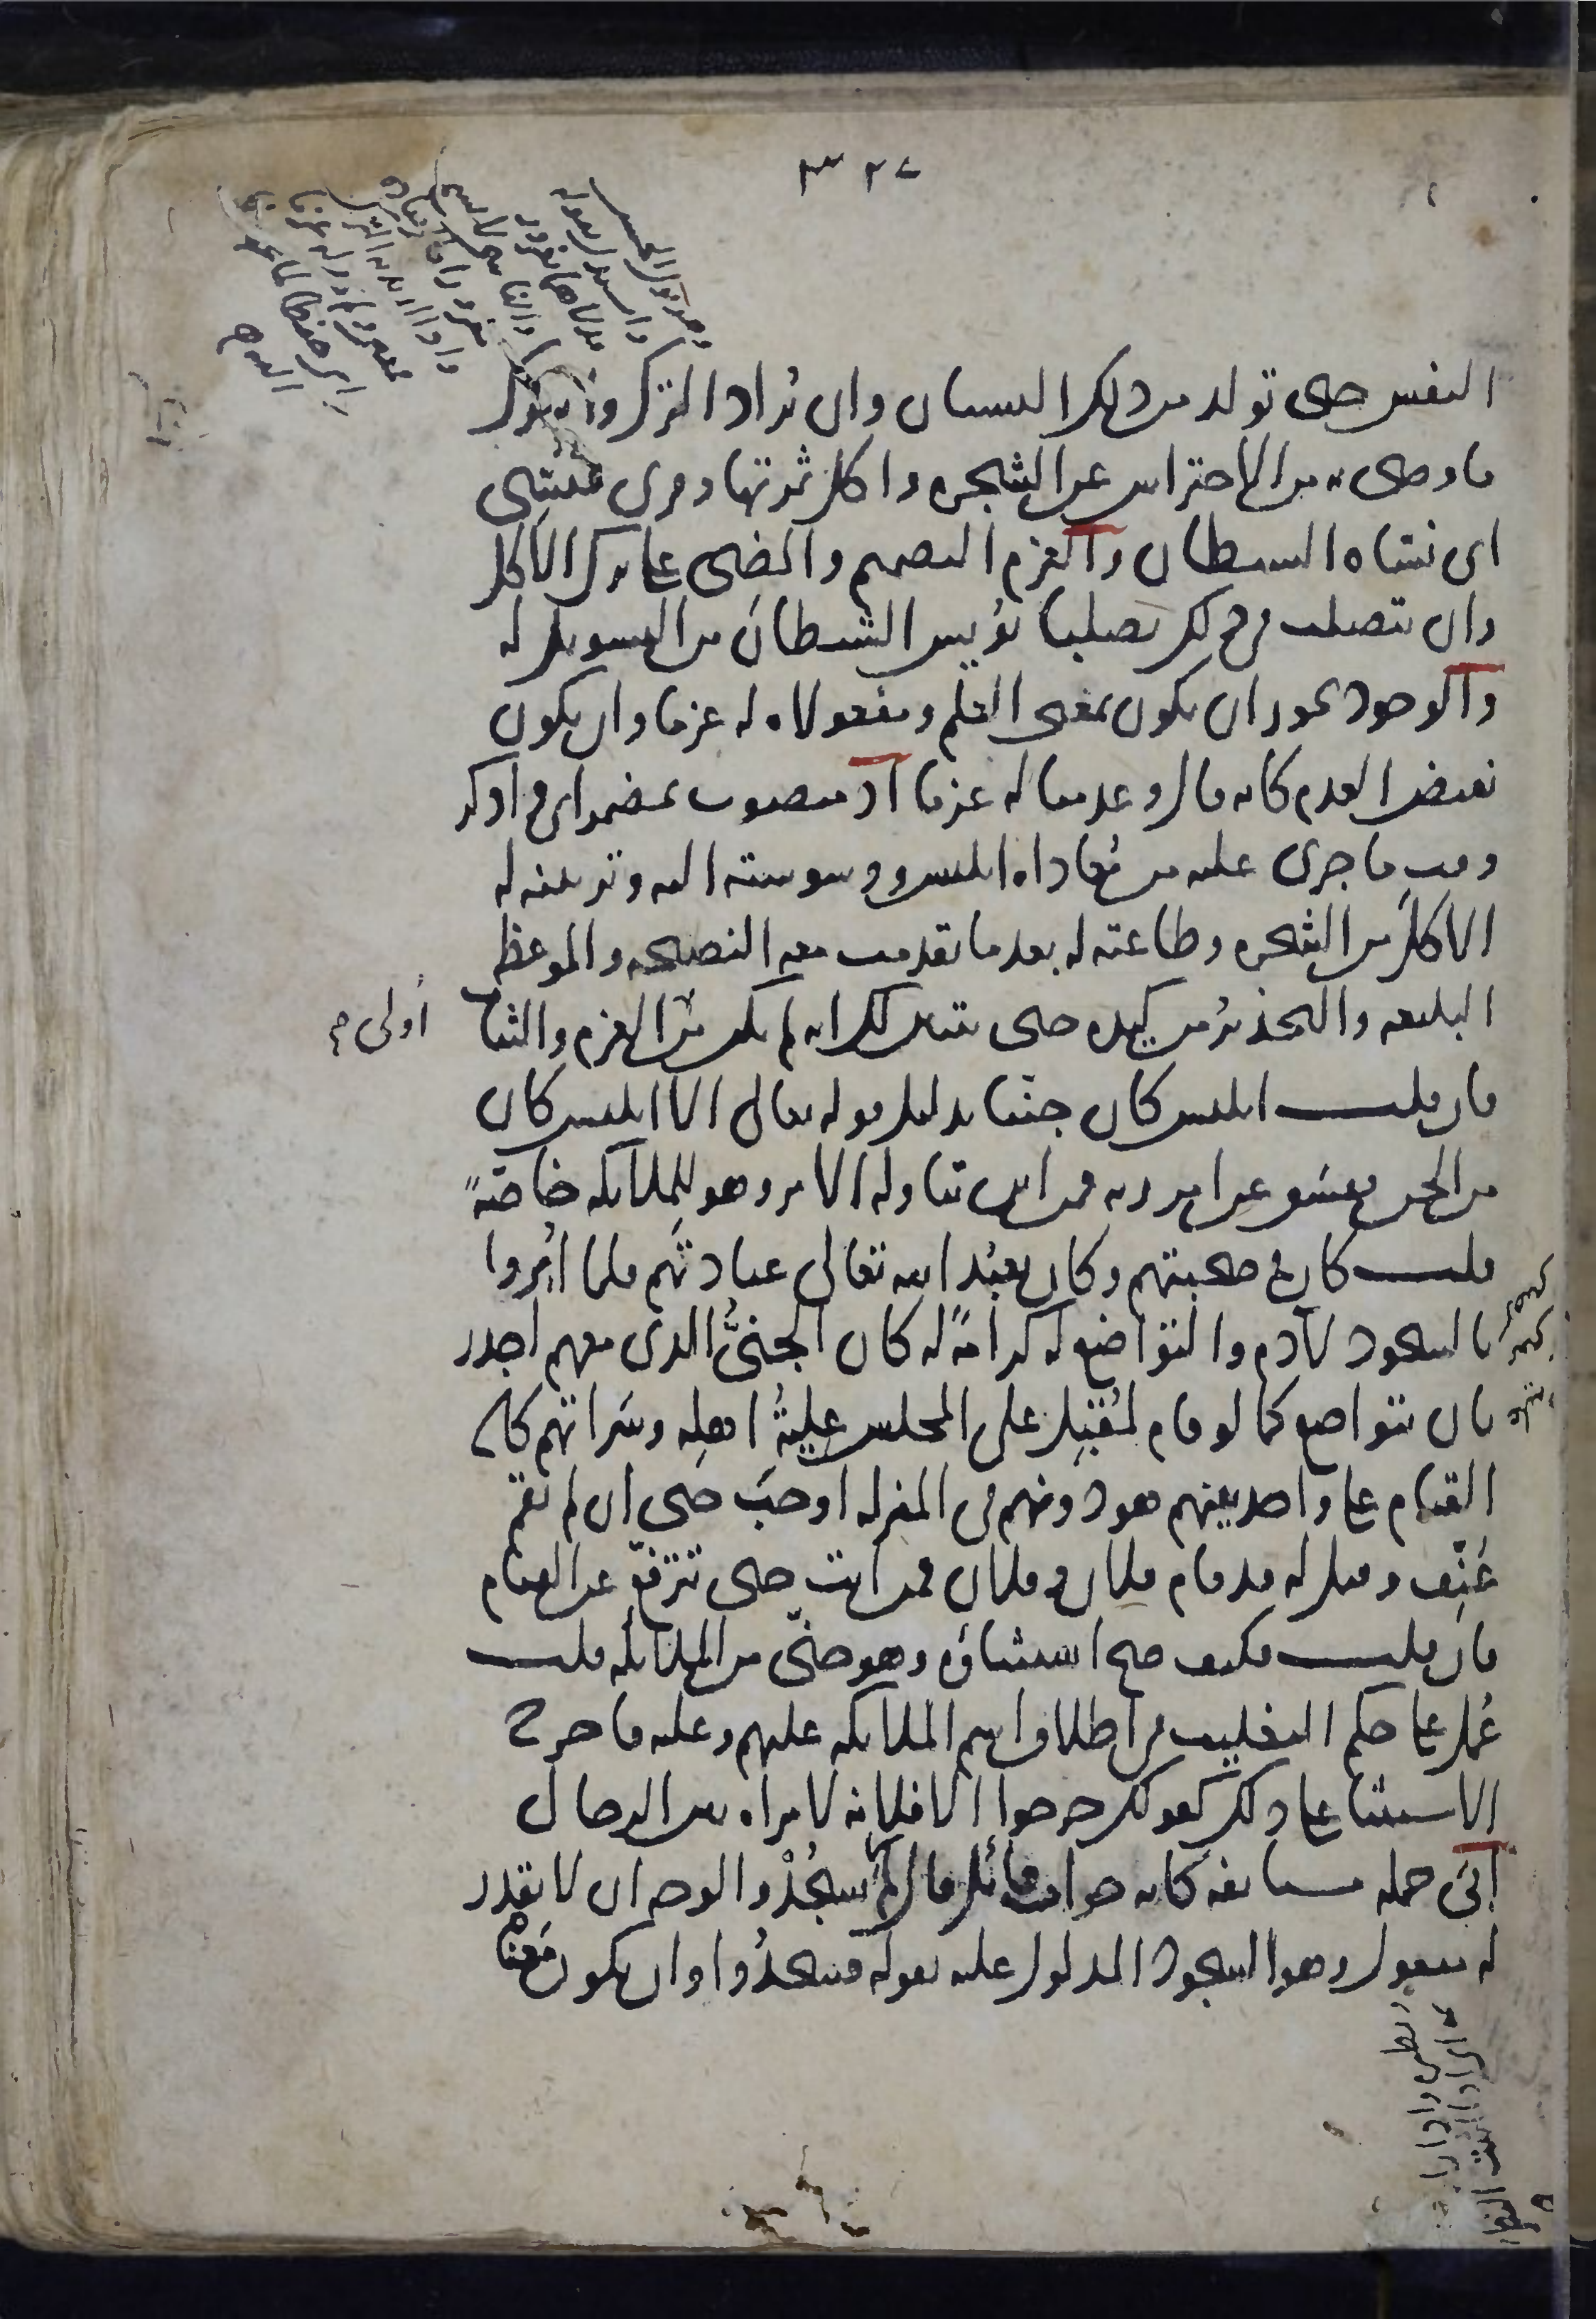 ٣٢٧
النفس حتى تولد من ذلك النسيان وان يُراد الترك وانه ترك
ما وصى به من الاحتراس عن الشجره واكل ثمرتها وقرى فنُسِّى
اى نسّاه الشيطان والعزم التصميم والمضى على ترك الاكل
وان يتصلب فى ذلك تصلبا يُؤيس الشيطان من التسويل له
والوجود يجوز ان يكون بمعنى العلم ومفعولاه له عزما وان يكون
نقيض العدم كانه قال وعدمنا له عزما اذ منصوب بمضمر اى واذكر
وقت ما جرى عليه من مُعاداه ابليس ووسوسته اليه وتزيينه له
الاكلَ من الشجره وطاعته له بعد ما تقدمت معه النصيحه والموعظه
البليغه والتحذيرُ من كيده حتى يتبين لك انه لم يكن من اولى العزم والثبات
فان قلت ابليس كان جنّيا بدليل قوله تعالى الا ابليس كان
من الجن ففسق عن امر ربه فمن اين تناوله الامر وهو للملائكه خاصّةً
قلت كان فى صحبتهم وكان يعبُد الله تعالى عبادتهم فلما اُمِروا
بالسجود لآدم والتواضع له كرامةً له كان الجنىُّ الذى معهم اجدر
بان يتواضع كما لو قام لمُقبِل على المجلس عِليةُ اهله وسَراتهم كان
القيام على واحد بينهم هو دونهم فى المنزله اوجبَ حتى ان لم يقم
عُنِّف وقيل له قد قام فلان وفلان فمن انت حتى تترفّع عن القيام
فان قلت فكيف صح استثناؤه وهو جنّى من الملائكه قلت
عُمل على حكم التغليب فى اطلاق اسم الملائكه عليهم وعليه فاخرج
الاستثنا على ذلك كقولك خرجوا الا فلانه لامراه بين الرجال
اَبَى جمله مستانفه كانه جواب قائل قال لِمَ لَمْ يسجُدْ والوجه ان لا يقدر
له مفعول وهو السجود المدلول عليه بقوله فسجدُوا وان يكون مَعْنَاهُ